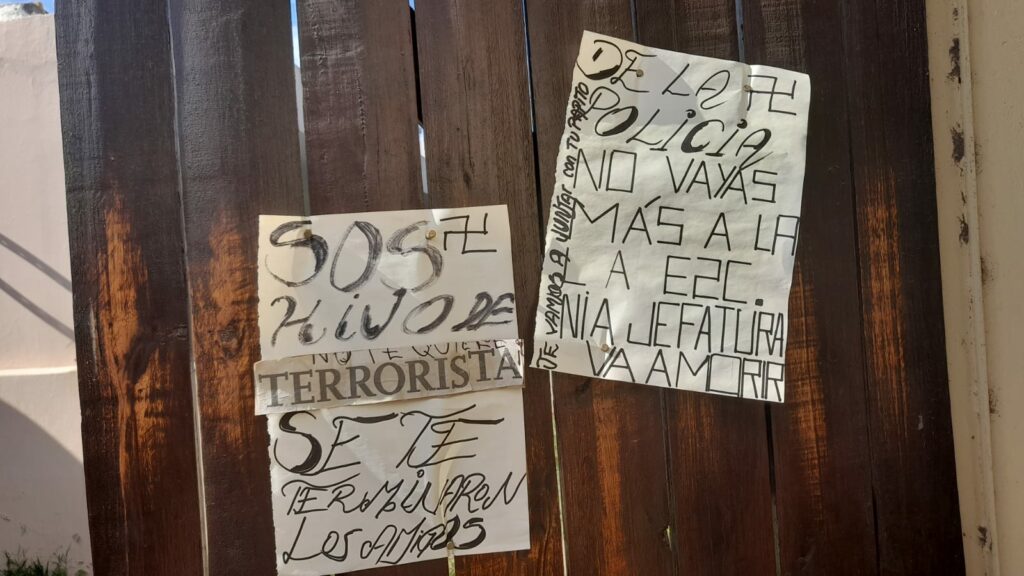 SOS 卍
HIJO DE
NO TE QUIERE
TERRORISTA
SE TE
TERMINARON
LOS AMIGOS
DE LA 卍
POLICIA
NO VAYAS
MÁS A LA
L A EZC.
NI A JEFATURA
VA A MORIR
TE VAMOS A JUNTAR CON TU PAPA